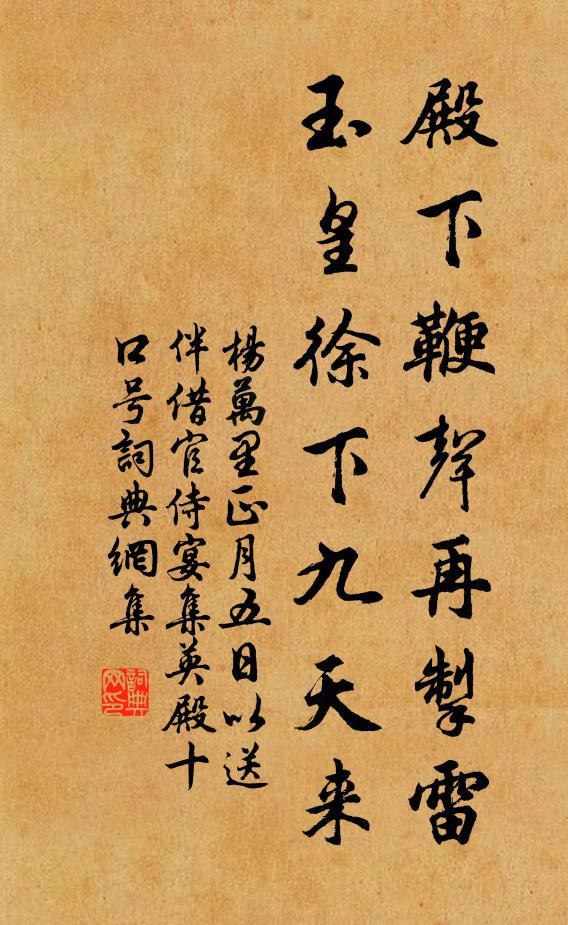 殿下鞭聲再掣雷
玉皇徐下九天来
楊萬里正月五日以送
伴借官侍宴集英殿十
口号詞典網集
詞典网印